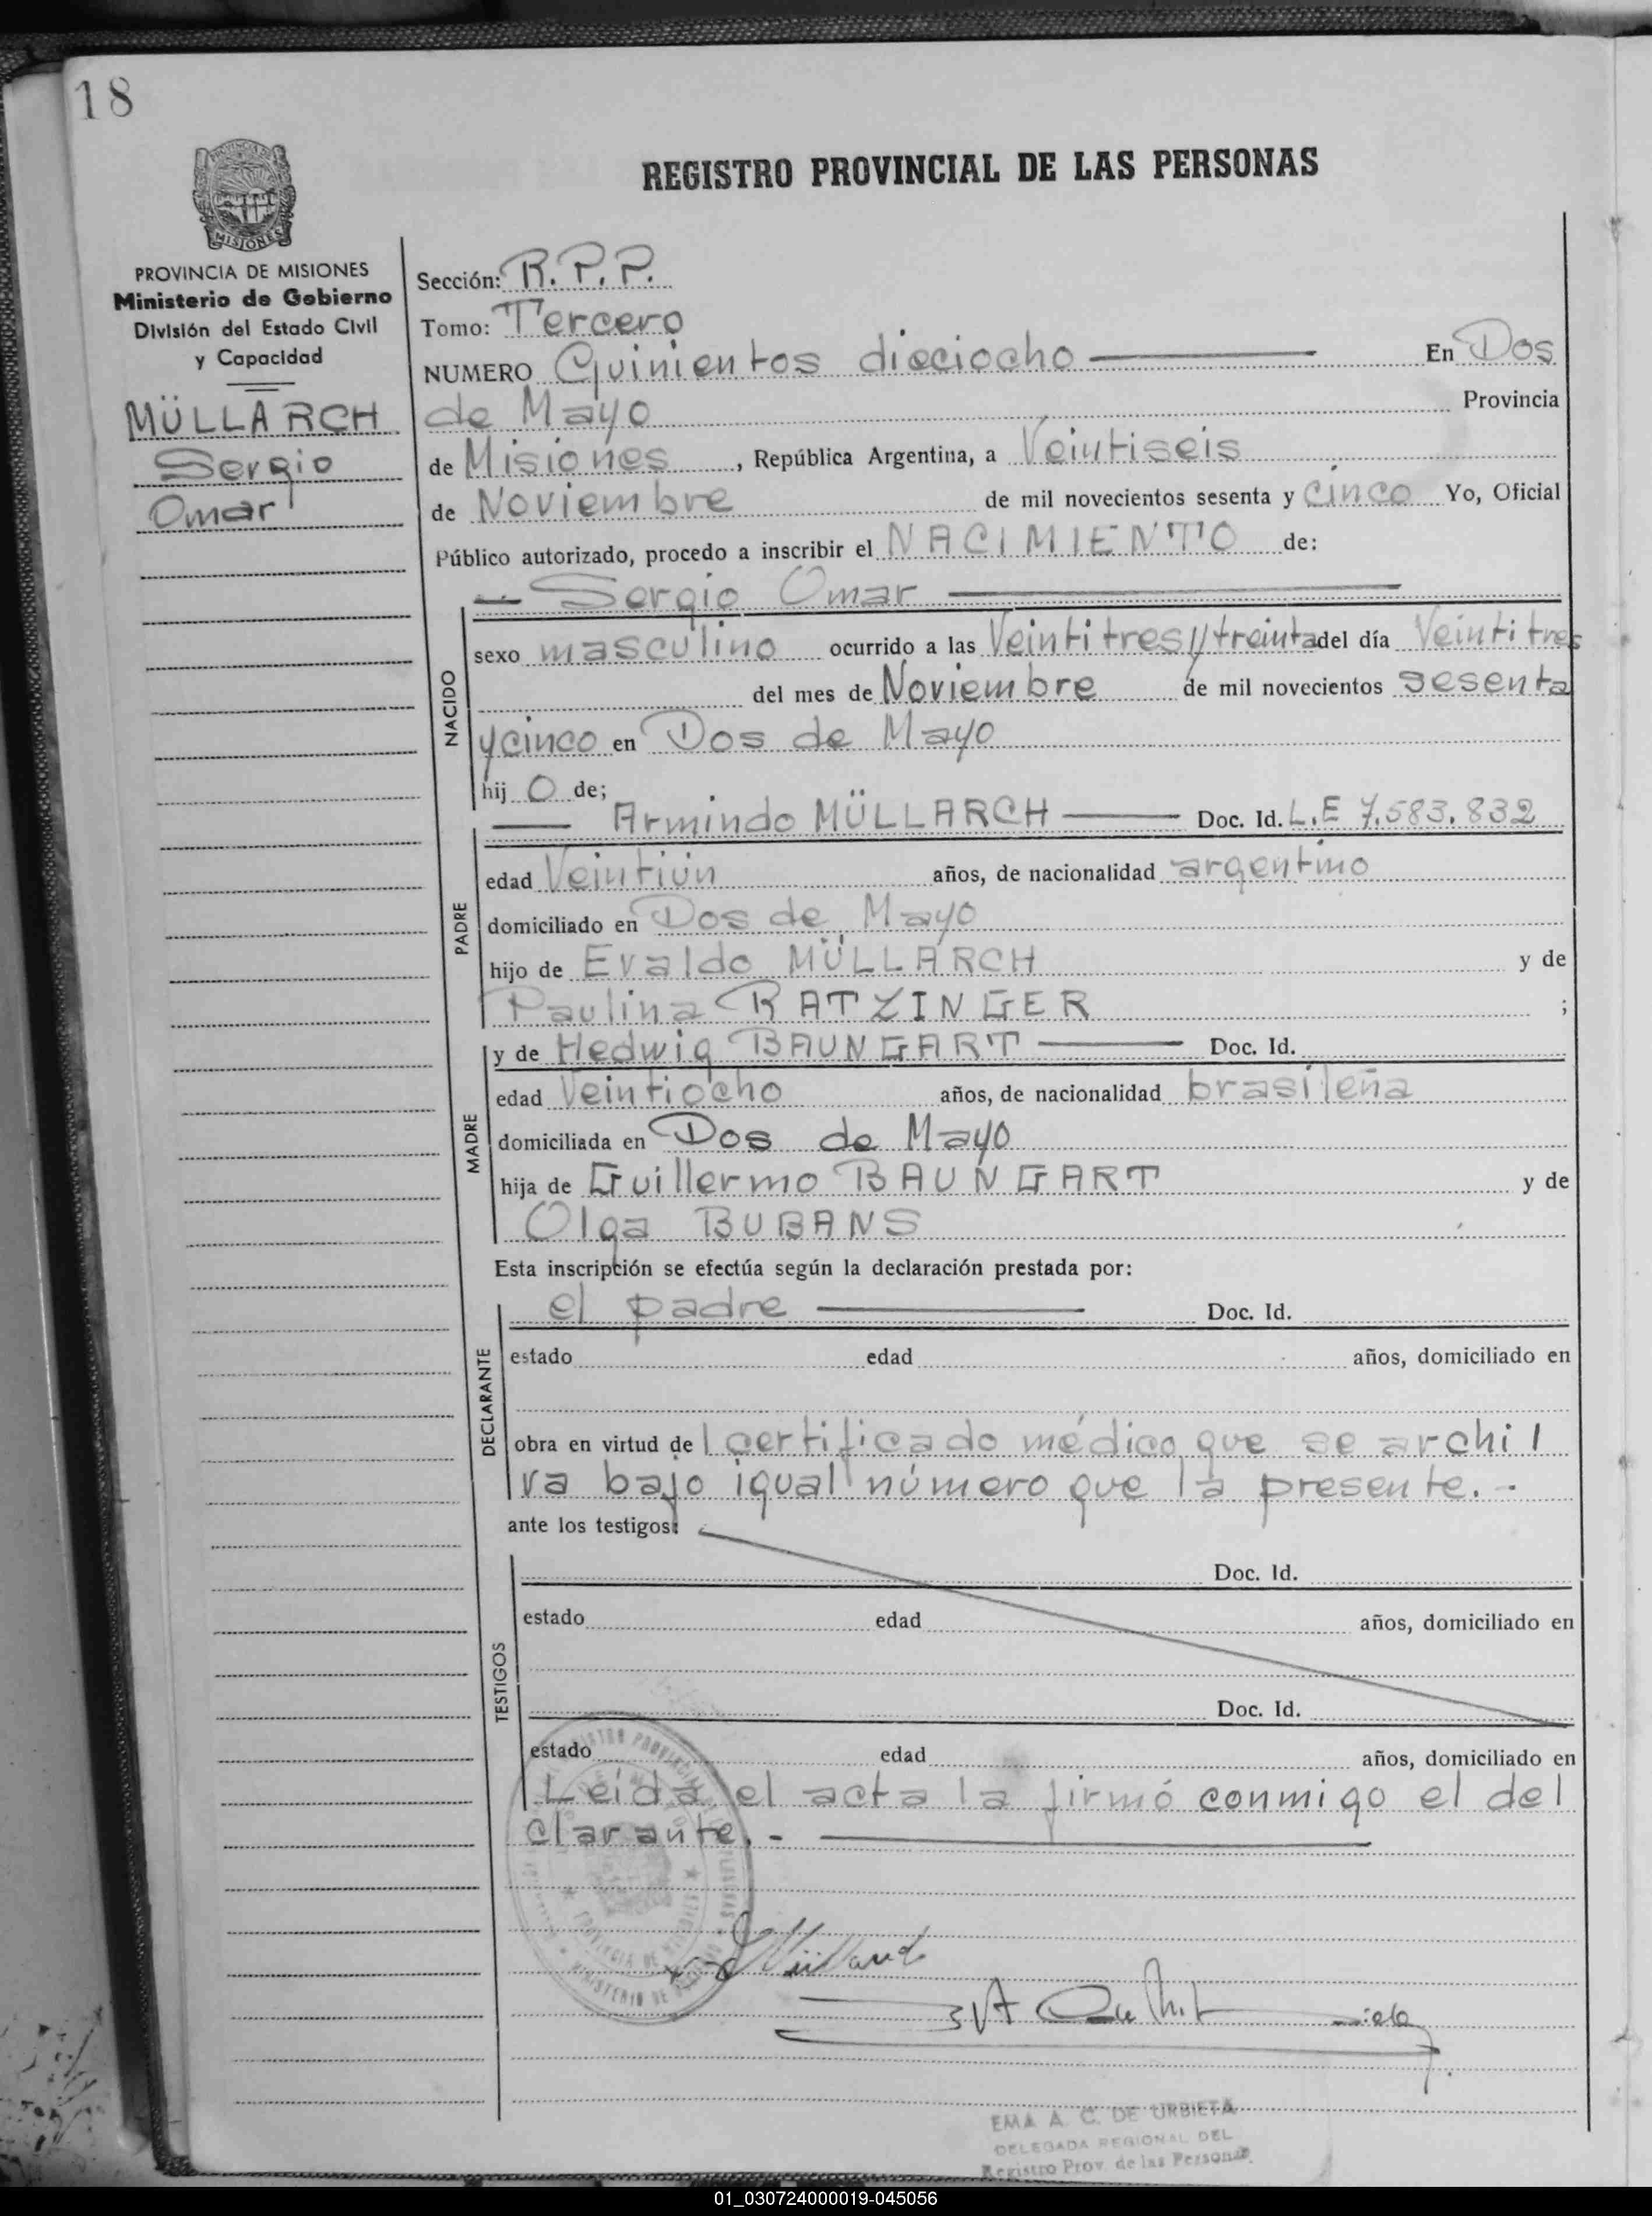 18
REGISTRO PROVINCIAL DE LAS PERSONAS
MISIONES
PROVINCIA DE MISIONES
Ministerio de Gobierno
División del Estado Civil
y Capacidad
MÜLLARCH
Sergio
Omar
Sección: R.P.P.
Tomo: Tercero
NUMERO Quinientos dieciocho En Dos
de Mayo Provincia
de Misiones, República Argentina, a Veintiseis
de Noviembre de mil novecientos sesenta y cinco Yo, Oficial
Público autorizado, procedo a inscribir el NACIMIENTO de:
Sergio Omar
NACIDO
sexo masculino ocurrido a las Veintitres y treinta del día Veintitres
del mes de Noviembre de mil novecientos sesenta
y cinco en Dos de Mayo
hij o de;
PADRE
Armindo MÜLLARCH Doc. Id. L.E 7.583.832
edad Veintiún años, de nacionalidad argentino
domiciliado en Dos de Mayo
hijo de Evaldo MÜLLARCH y de
Paulina RATZINGER ;
MADRE
y de Hedwig BAUNGART Doc. Id.
edad Veintiocho años, de nacionalidad brasileña
domiciliada en Dos de Mayo
hija de Guillermo BAUNGART y de
Olga BUBANS
Esta inscripción se efectúa según la declaración prestada por:
DECLARANTE
el padre Doc. Id.
estado edad años, domiciliado en
obra en virtud de l certificado médico que se archi
va bajo igual número que la presente.-
ante los testigos:
TESTIGOS
Doc. Id.
estado edad años, domiciliado en
Doc. Id.
estado edad años, domiciliado en
Leída el acta la firmó conmigo el de
clarante.-
EMA A. C. DE URBIETA
DELEGADA REGIONAL DEL
Registro Prov. de las Personas
01_030724000019-045056